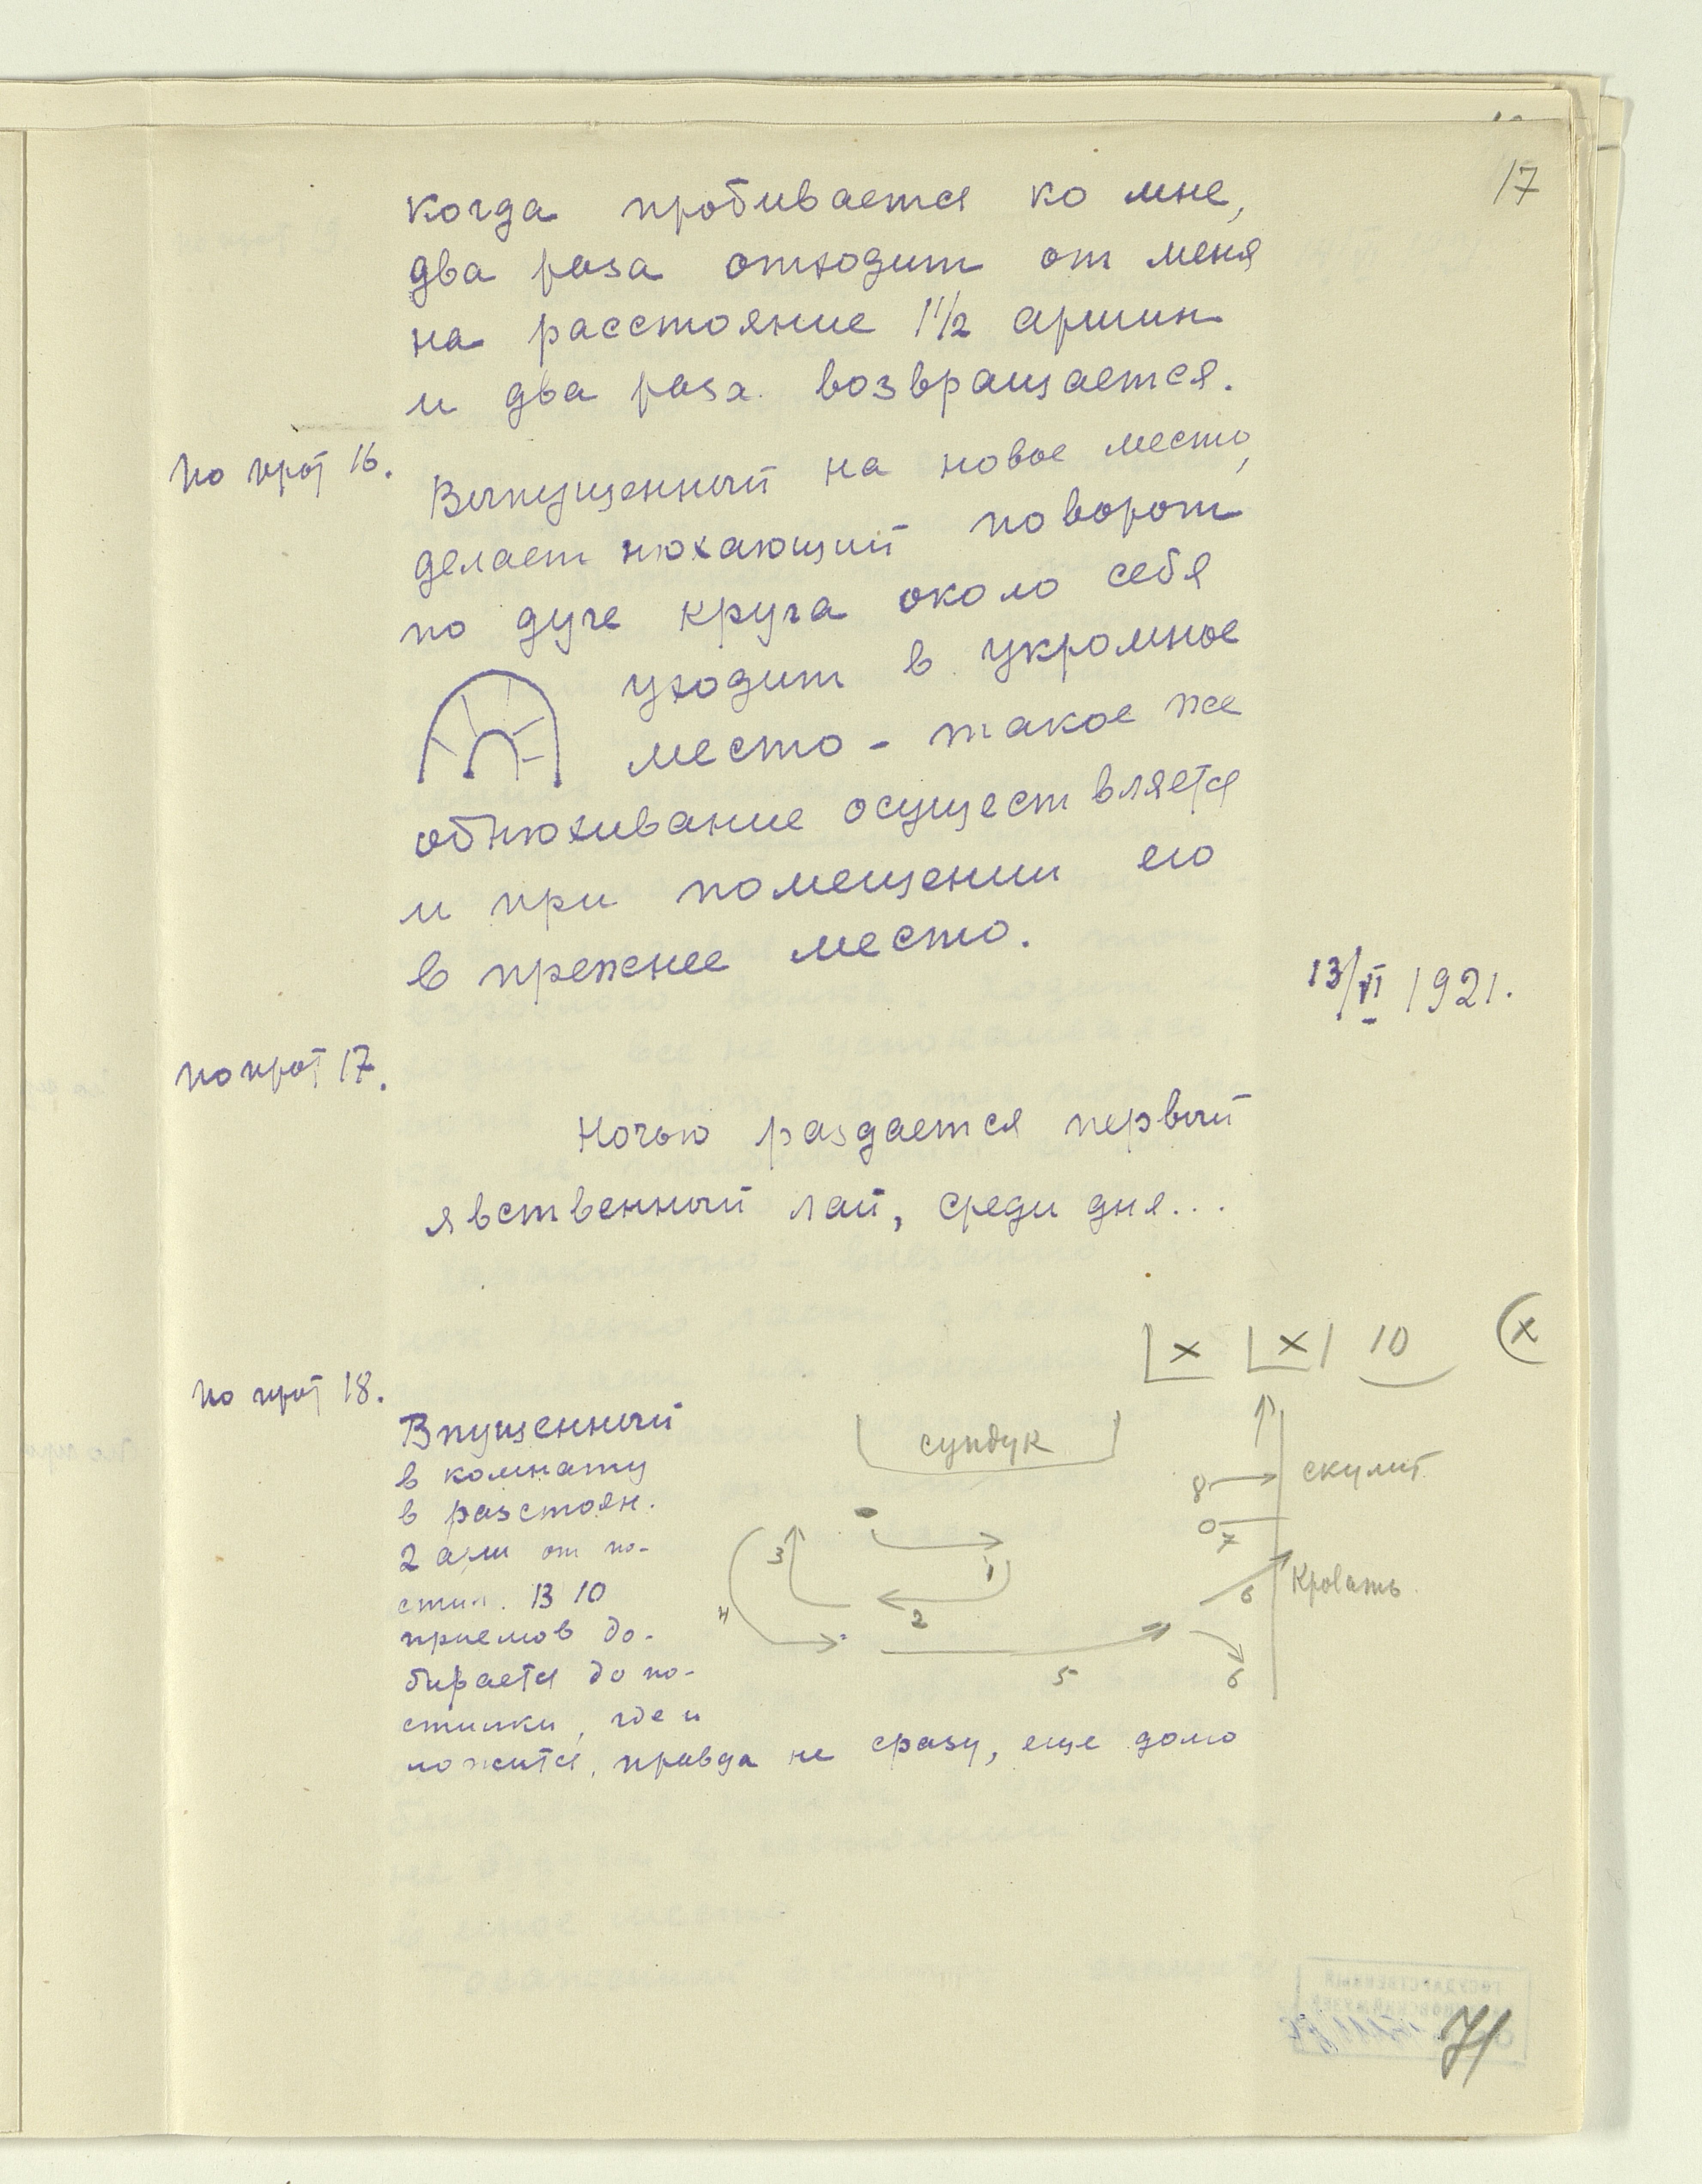 17
когда пробивается ко мне,
два раза отходит от меня
на расстояние 1 1/2 аршин
и два раза возвращается.
по прот 16.
Выпущенный на новое место,
делает нюхающий поворот
по дуге круга около себя
уходит в укромное
место - такое же
обнюхивание осуществляется
и при помещении его
в прежнее место.
13/VI 1921.
по прот 17.
Ночью раздается первый
явственный лай, среди дня...
x x 10 x
по прот 18.
Впущенный
в комнату
в разстоян.
2 арш от по-
стил. В 10
приемов до-
бирается до по-
стилки, где и
ложится, правда не сразу, еще долго
сундук
скулит
8
7
3
1
Кровать
6
4
2
5
6
71